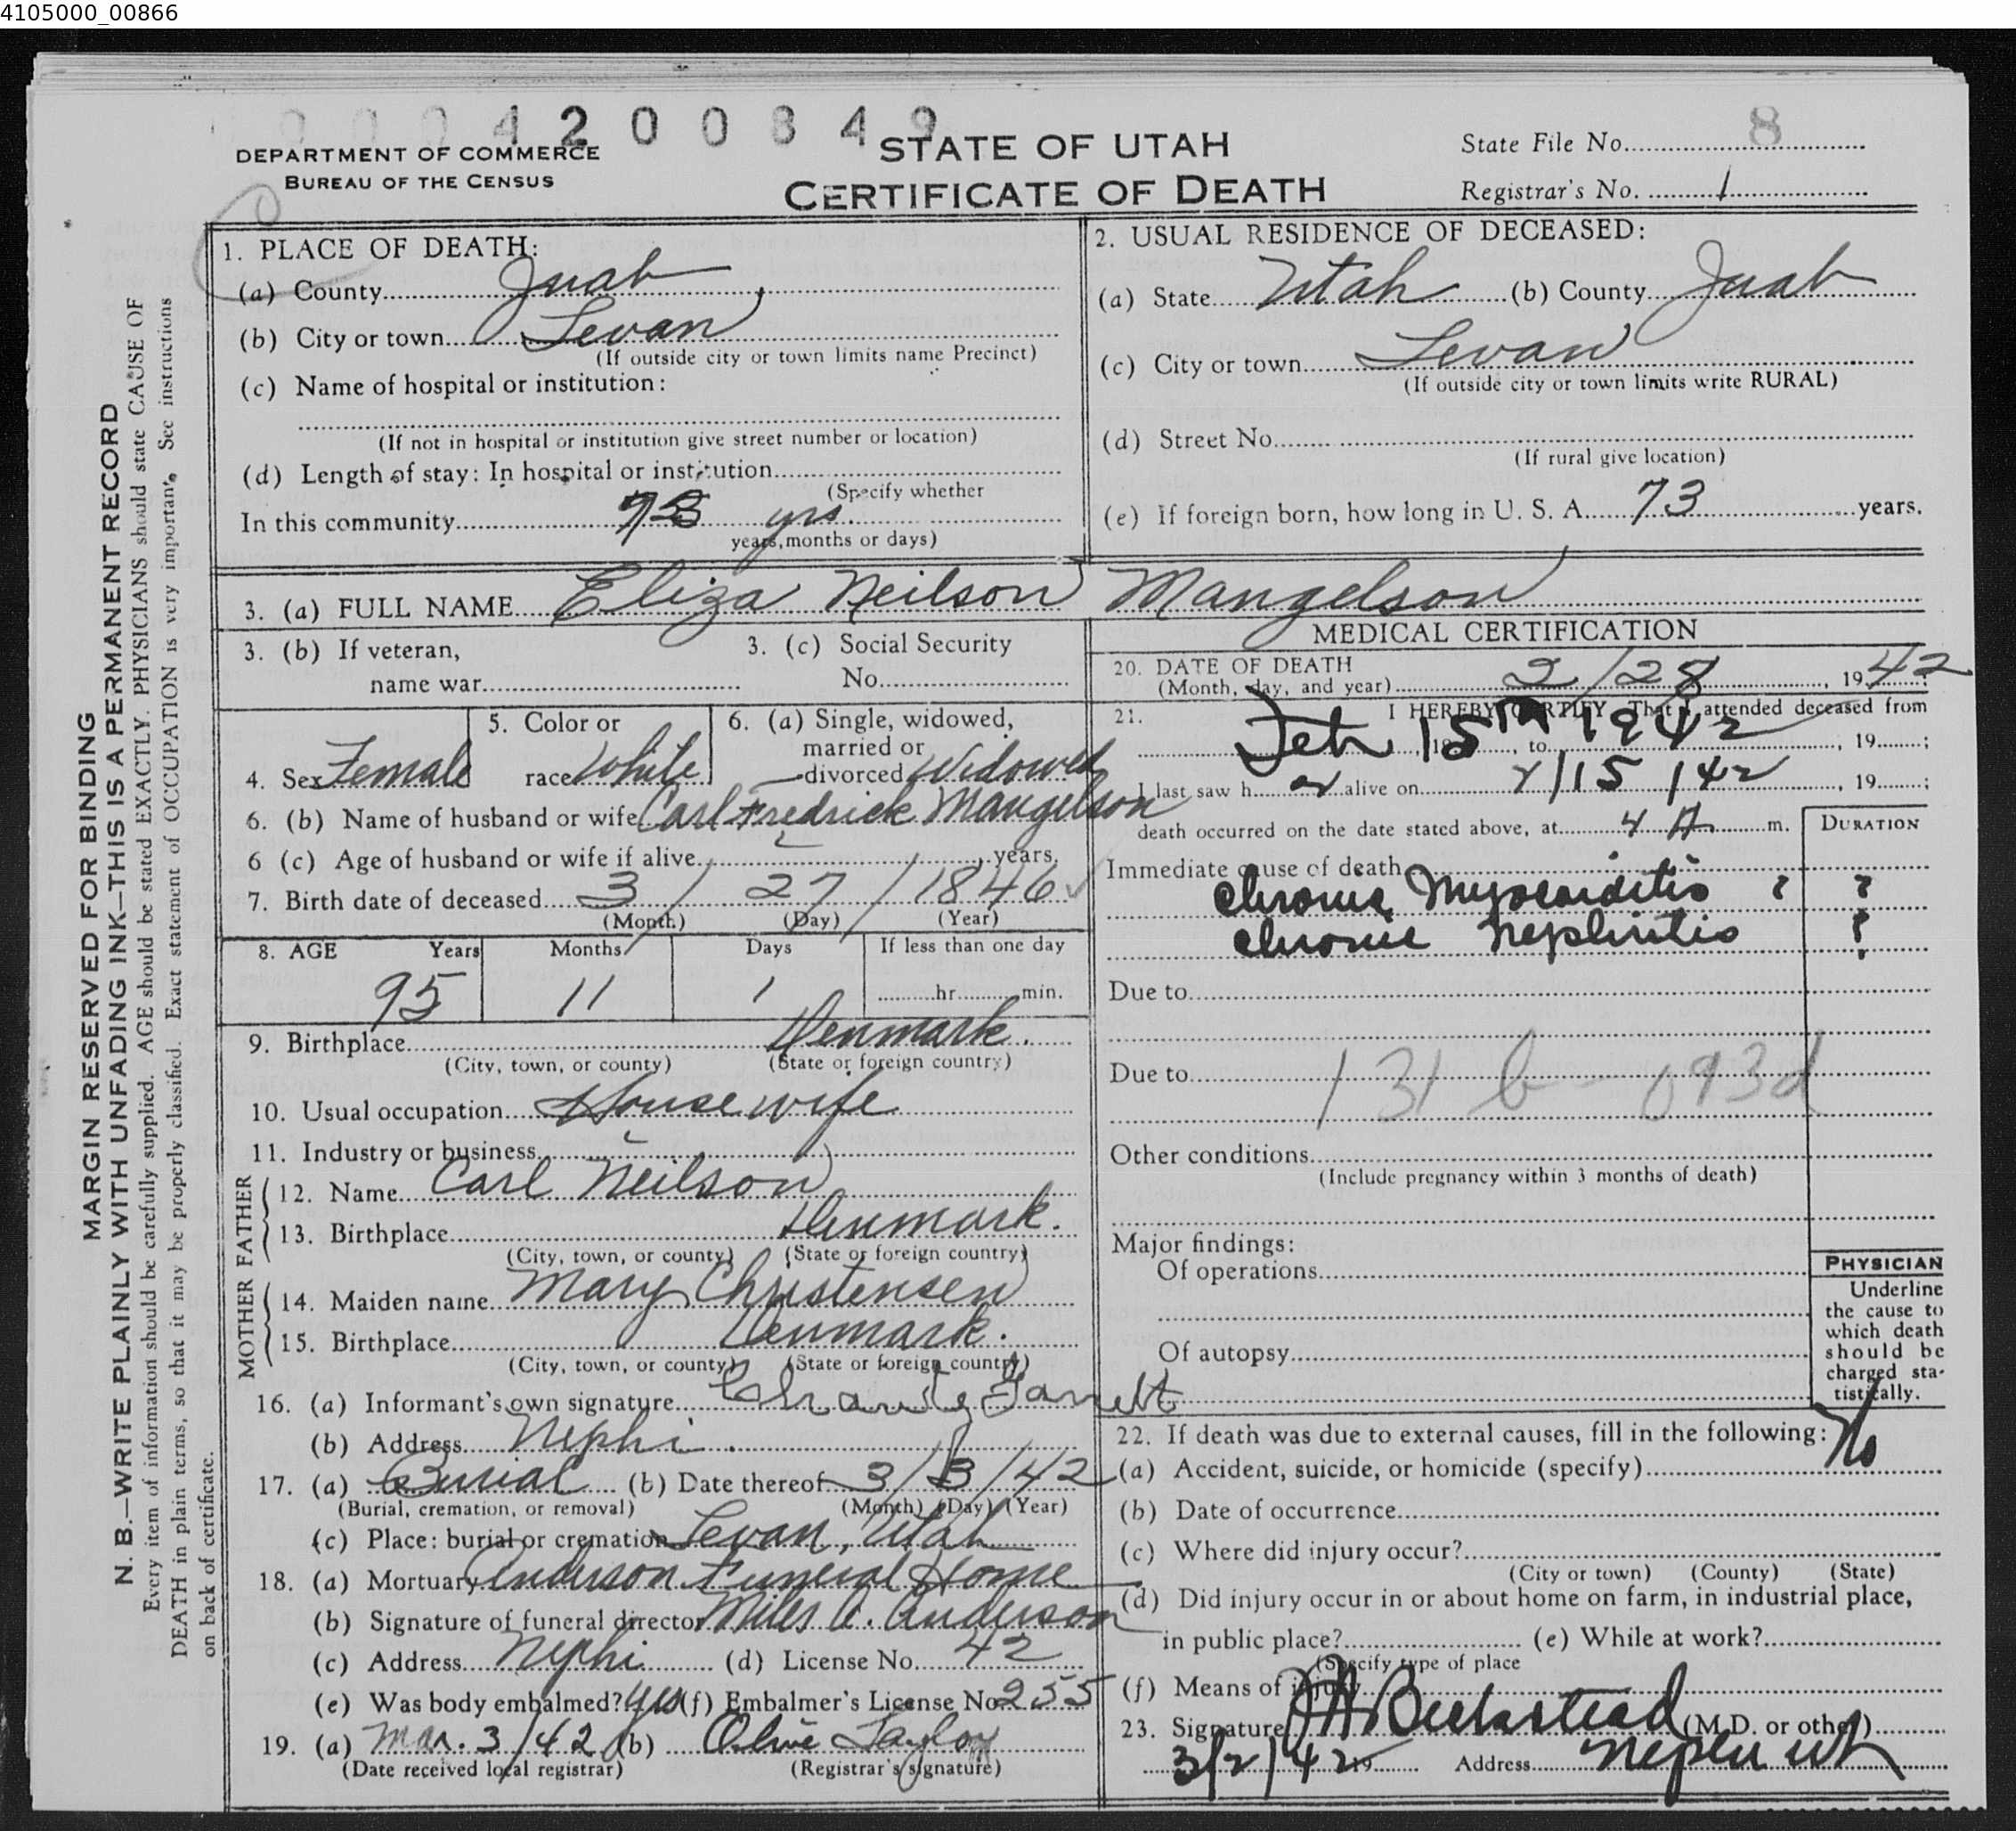 4105000_00866
0004200849
DEPARTMENT OF COMMERCE
BUREAU OF THE CENSUS
STATE OF UTAH
CERTIFICATE OF DEATH
State File No. 8
Registrar's No. 1
MARGIN RESERVED FOR BINDING
N. B.—WRITE PLAINLY WITH UNFADING INK—THIS IS A PERMANENT RECORD
Every item of information should be carefully supplied. AGE should be stated EXACTLY. PHYSICIANS should state CAUSE OF
DEATH in plain terms, so that it may be properly classified. Exact statement of OCCUPATION is very important. See instructions
on back of certificate.
1. PLACE OF DEATH:
(a) County Juab
(b) City or town Levan
(If outside city or town limits name Precinct)
(c) Name of hospital or institution:
(If not in hospital or institution give street number or location)
(d) Length of stay: In hospital or institution
(Specify whether
In this community 73 yrs.
years, months or days)
2. USUAL RESIDENCE OF DECEASED:
(a) State Utah (b) County Juab
(c) City or town Levan
(If outside city or town limits write RURAL)
(d) Street No.
(If rural give location)
(e) If foreign born, how long in U. S. A. 73 years.
3. (a) FULL NAME Eliza Neilson Mangelson
3. (b) If veteran,
name war
3. (c) Social Security
No.
4. Sex Female
5. Color or
race White
6. (a) Single, widowed,
married or
divorced Widowed
6. (b) Name of husband or wife Carl Fredrick Mangelson
6 (c) Age of husband or wife if alive years.
7. Birth date of deceased 3 / 27 / 1846
(Month) (Day) (Year)
8. AGE Years Months Days If less than one day
95 11 1 hr. min.
9. Birthplace Denmark.
(City, town, or county) (State or foreign country)
10. Usual occupation Housewife
11. Industry or business
FATHER
12. Name Carl Neilson
13. Birthplace Denmark.
(City, town, or county) (State or foreign country)
MOTHER
14. Maiden name Mary Christensen
15. Birthplace Denmark.
(City, town, or county) (State or foreign country)
16. (a) Informant's own signature
(b) Address Nephi.
17. (a) Burial (b) Date thereof 3/3/42
(Burial, cremation, or removal) (Month) (Day) (Year)
(c) Place: burial or cremation Levan, Utah
18. (a) Mortuary Anderson Funeral Home
(b) Signature of funeral director Miles A. Anderson
(c) Address Nephi (d) License No. 42
(e) Was body embalmed? Yes (f) Embalmer's License No. 255
19. (a) Mar. 3/42 (b) Olive Taylor
(Date received local registrar) (Registrar's signature)
MEDICAL CERTIFICATION
20. DATE OF DEATH
(Month, day, and year) 2/28, 1942;
21. I HEREBY CERTIFY That I attended deceased from
Feb 15th 1942, 19 , to , 19 ;
I last saw h er alive on 2/15/42, 19 ;
death occurred on the date stated above, at 4 A m.
DURATION
Immediate cause of death
Chronic Myocarditis ? ?
Chronic Nephritis ?
Due to
Due to 131 b - 093d
Other conditions
(Include pregnancy within 3 months of death)
Major findings:
Of operations
Of autopsy
PHYSICIAN
Underline
the cause to
which death
should be
charged sta-
tistically.
22. If death was due to external causes, fill in the following: No
(a) Accident, suicide, or homicide (specify)
(b) Date of occurrence
(c) Where did injury occur?
(City or town) (County) (State)
(d) Did injury occur in or about home on farm, in industrial place,
in public place? (e) While at work?
(Specify type of place
(f) Means of injury
23. Signature Beckstead (M.D. or other)
3/2/42 19 Address Nephi Ut